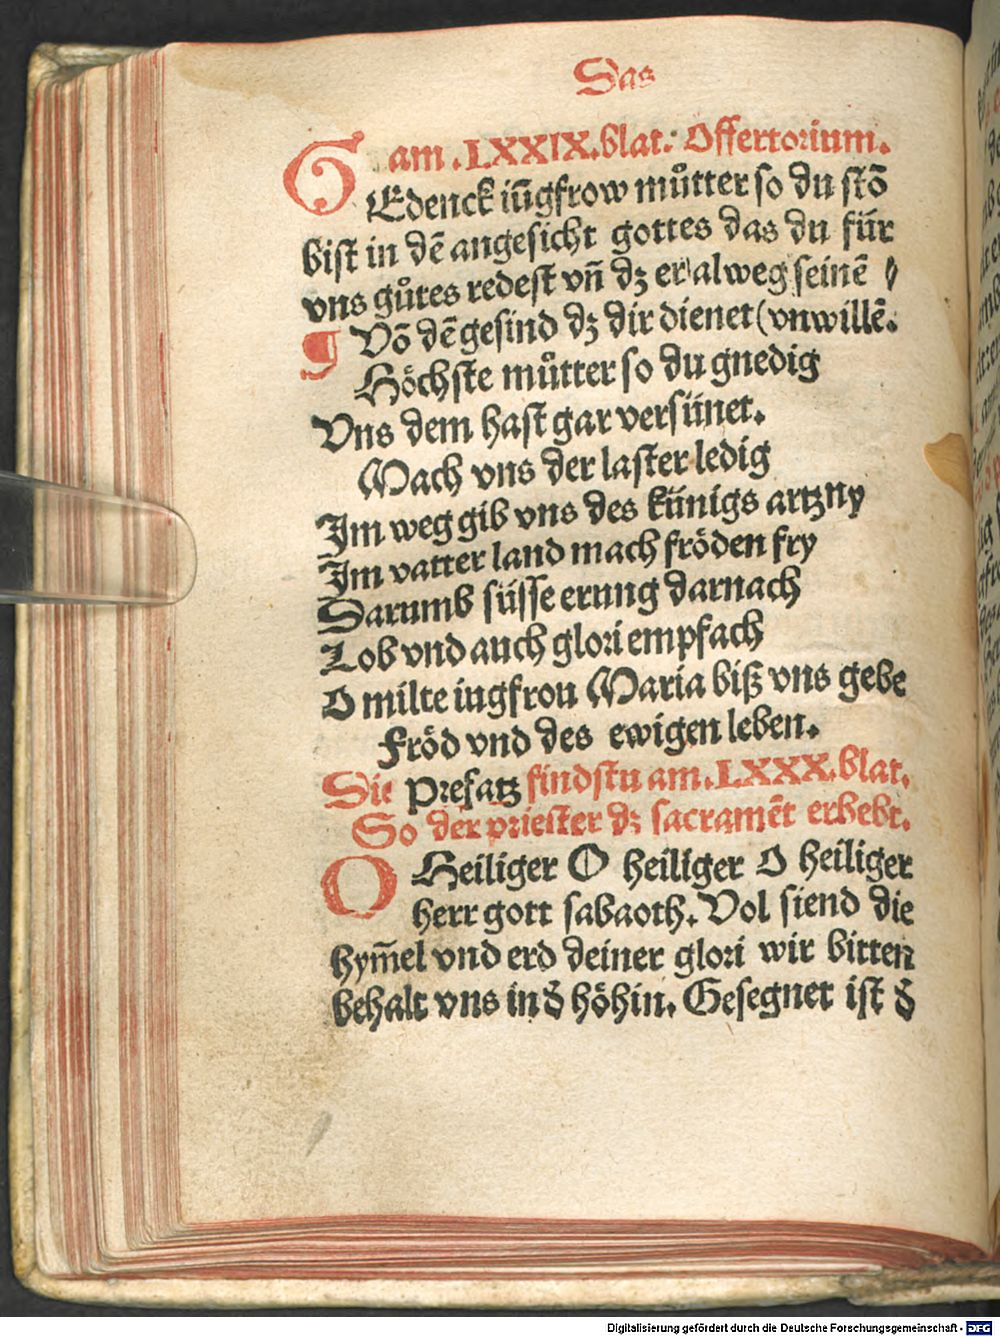 Das
am .LXXIX.blat: Offertorium.
GEdenck iũgfrow můtter so du stõ
bist in dẽ angesicht gottes das du für
vns gůtes redest vñ dz er alweg seinẽ
¶ Võ dẽ gesind dz dir dienet (vnwillẽ.
Höchste můtter so du gnedig
Vns dem hast gar versünet.
Mach vns der laster ledig
Im weg gib vns des künigs artzny
Im vatter land mach fröden fry
Darumb süsse erung darnach
Lob vnd auch glori empfach
O milte iugfrou Maria biß vns gebe
Fröd vnd des ewigen leben.
Die Prefatz findstu am.LXXX.blat.
So der priester dz sacramẽt erhebt.
O Heiliger O heiliger O heiliger
herr gott sabaoth. Vol siend die
hym̃el vnd erd deiner glori wir bitten
behalt vns in đ höhin. Gesegnet ist đ
Digitalisierung gefördert durch die Deutsche Forschungsgemeinschaft - DFG